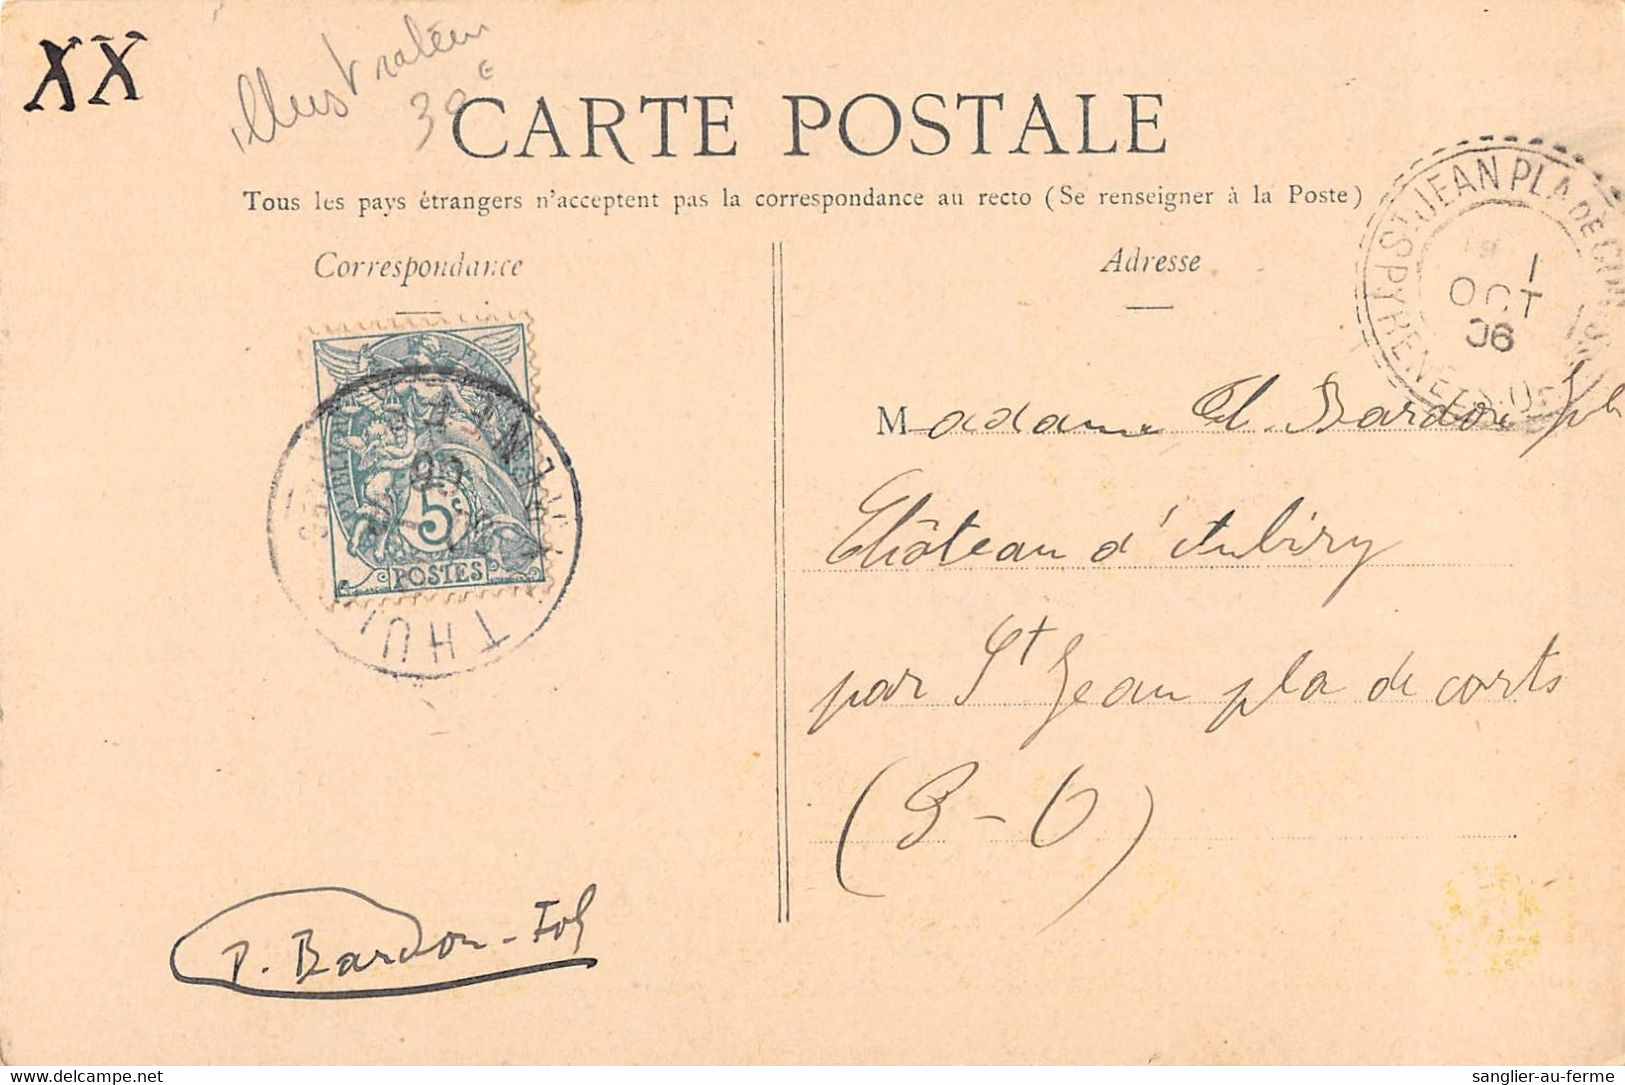 XX
illustrateur
30€
CARTE POSTALE
Tous les pays étrangers n'acceptent pas la correspondance au recto (Se renseigner à la Poste)
Correspondance
Adresse
ST JEAN PLA DE
PYRENÉES-OR
1
OCT
06
5c
POSTES
THUI
Madame Ch. Bardou Job
Château d'Aubiry
par St Jean pla de corts
(P-O)
P. Bardou-Job
sanglier-au-ferme